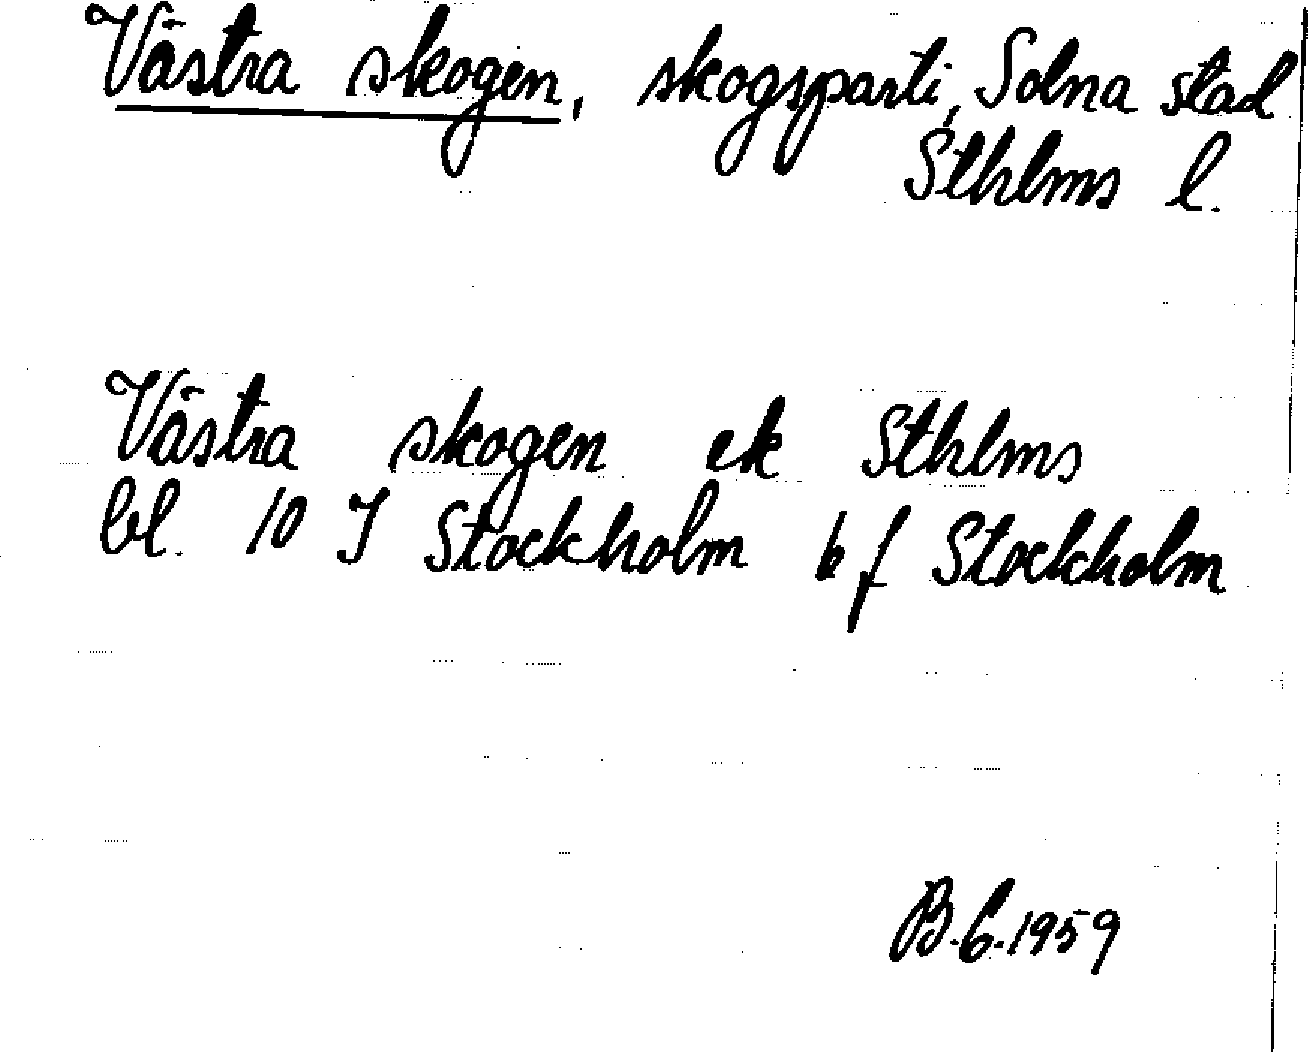 Västra skogen, skogsparti, Solna stad
Sthlms l.
Västra skogen ek Sthlms
bl. 10 I Stockholm 6 f Stockholm
B.C. 1959